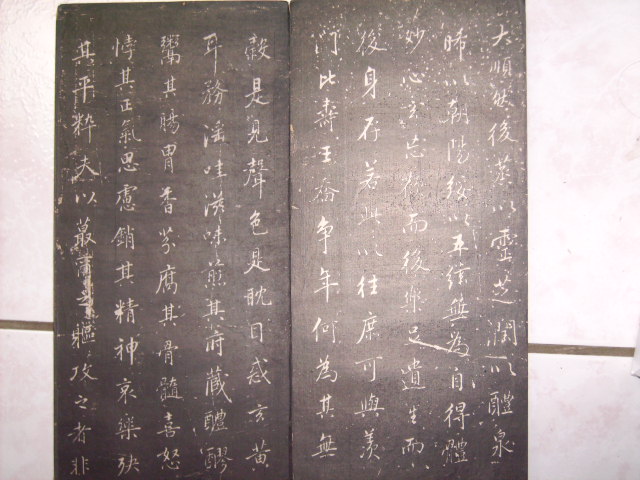 大順然後蒸以靈芝潤以醴泉
晞以朝陽綏以五絃無為自得體
妙心玄忘歡而後樂足遺生而
後身存若此以往庶可與羨
門比壽王喬争年何為其無
穀是見聲色是耽目惑玄黄
耳務淫哇滋味煎其府藏醴醪
鬻其腸胃香芳腐其骨髓喜怒
悖其正氣思慮銷其精神哀樂殃
其平粹夫以蕞爾之軀攻之者非